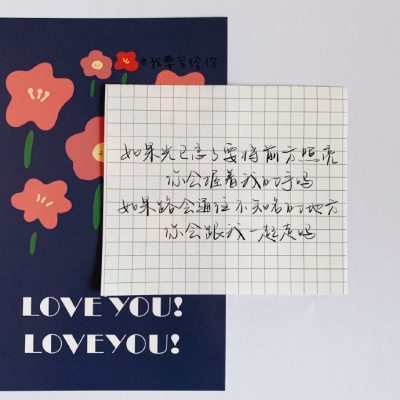 @我要写给你
如果光已忘了要将前方照亮
你会握着我的手吗
如果路会通往不知名的地方
你会跟我一起走吗
LOVE YOU!
LOVEYOU!